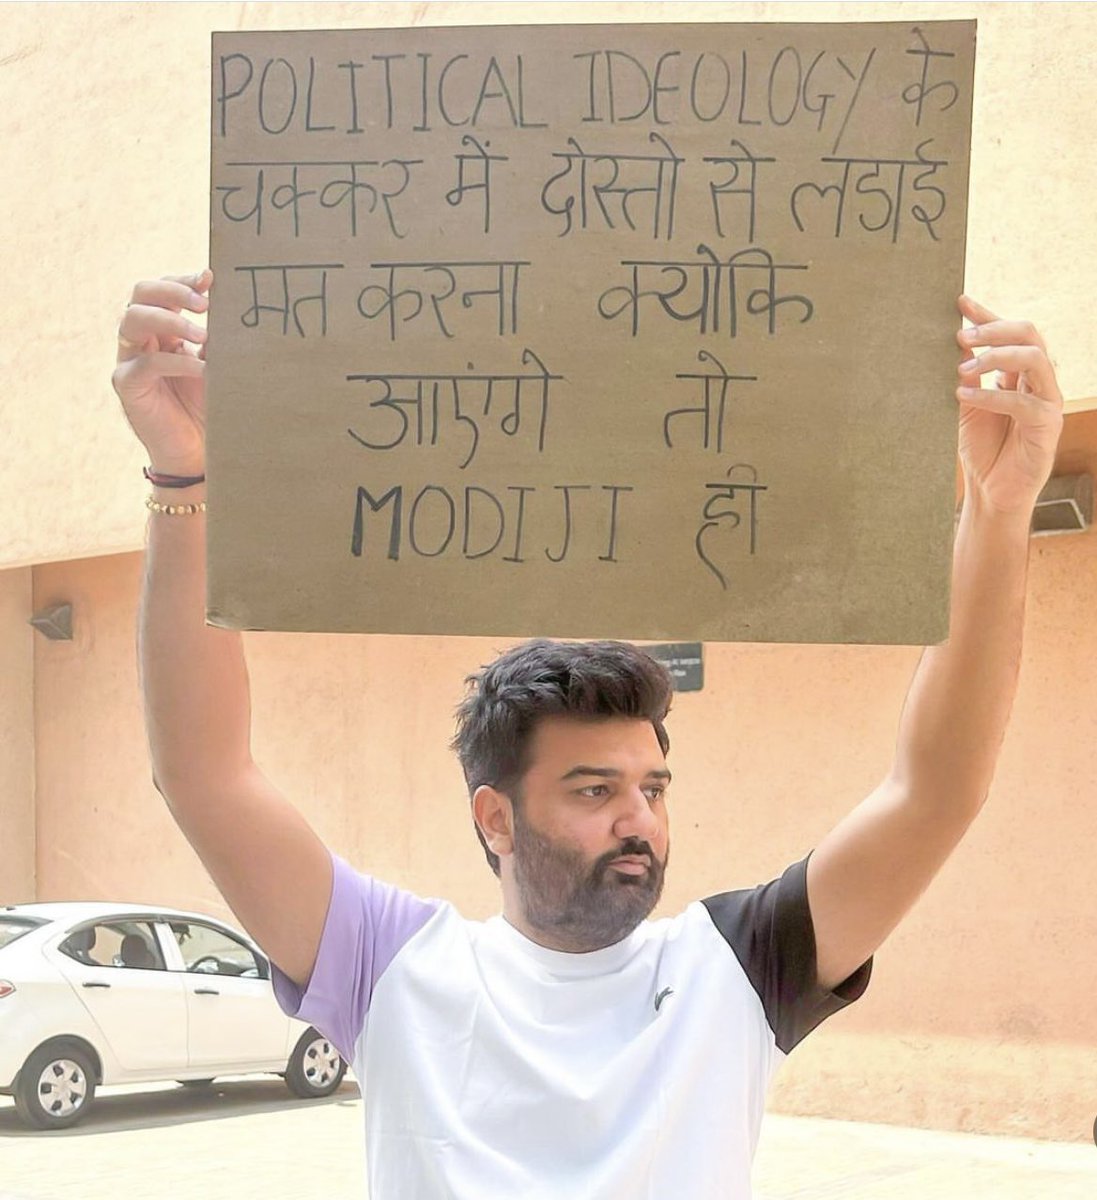 POLITICAL IDEOLOGY के
चक्कर में दोस्तो से लडाई
मत करना क्योकि
आएंगे तो
MODIJI ही